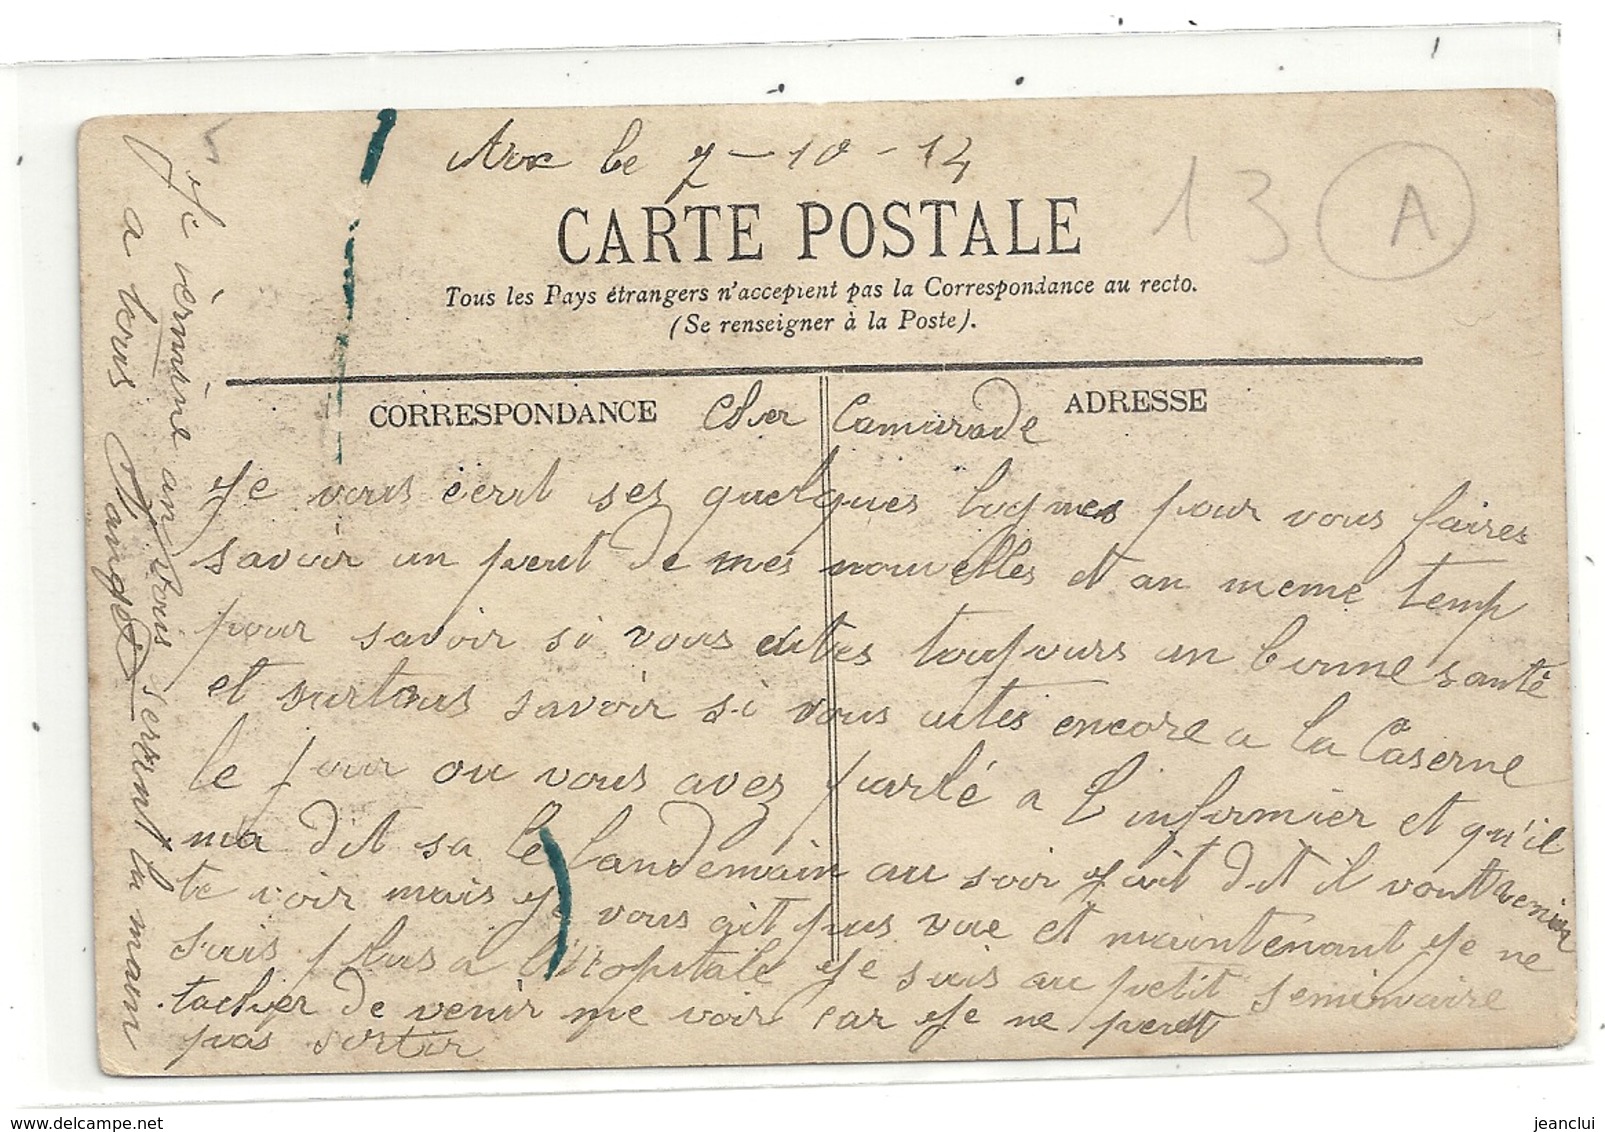 Aix le 7-10-14
13 A
CARTE POSTALE
Tous les Pays étrangers n'acceptent pas la Correspondance au recto.
(Se renseigner à la Poste).
CORRESPONDANCE
ADRESSE
Cher Camarade
Je vous écrit ses quelques lignes pour vous faires
savoir un peut de mes nouvelles et an meme temp
pour savoir si vous etes toujours en bonne santé
et surtous savoir si vous etes encore a la Caserne
le jour ou vous aves parlé a l'infirmier et qu'il
ma dit sa le landemain au soir dit il vont venir
te voir mais je vous ait pas vue et maintenant je ne
suis plus a l'Hopitale je suis au petit seminaire
tacher de venir me voir car je ne peut
pas sortir
Je termine an vous serrant la main
a tous
jeanclui